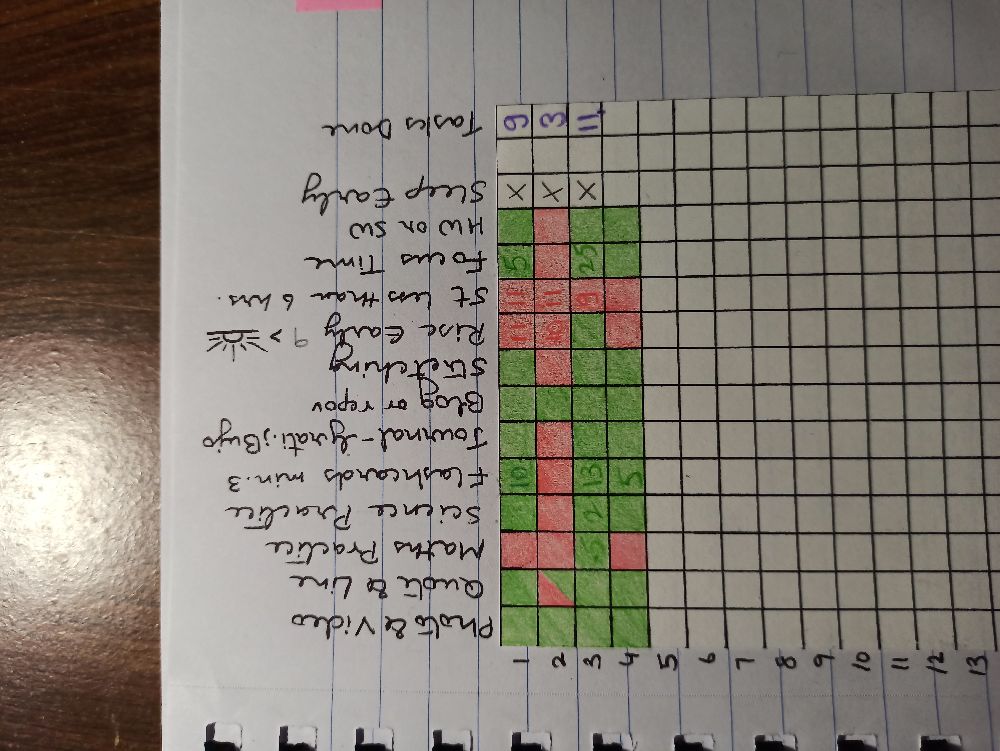 Photo & Video
Quote & Line
Maths Practice
Science Practice
Flashcards min. 3
Journal - Grati., Bujo
Blog or repov
Stretching
Rise Early 9 >
ST less than 6 hrs.
Focus Time
HW or SW
Sleep Early
Tasks Done
1 10 11 5 X 9
2 11 X 3
3 2 13 9 25 X 11
4 5
5
6
7
8
9
10
11
12
13